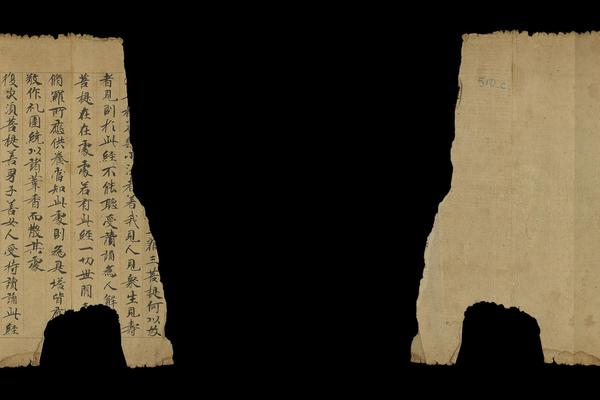 三菩提何以故
小法者著我見人見衆生見壽
者見則於此經不能聽受讀誦為人解
菩提在在處處若有此經一切世間
脩羅所應供養當知此處則為是塔皆應
敬作礼圍繞以諸華香而散其處
復次須菩提善男子善女人受持讀誦此經
510.c.